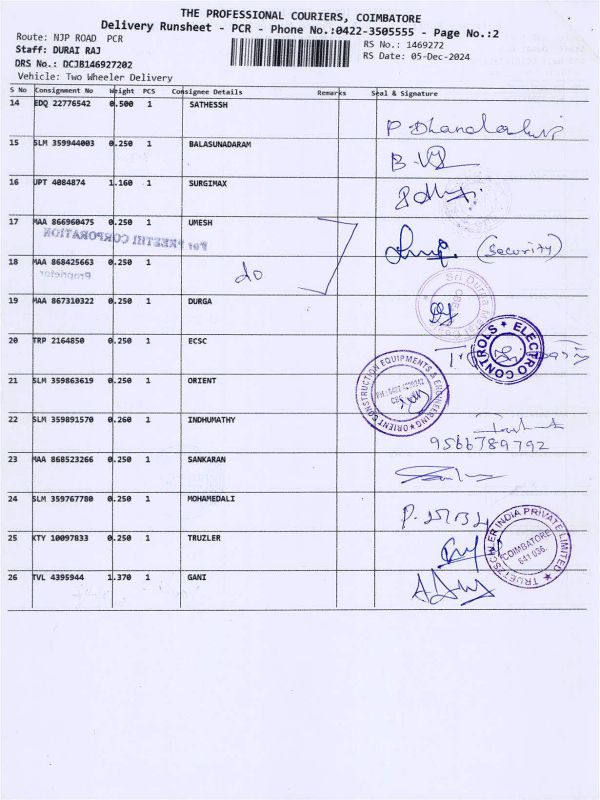 THE PROFESSIONAL COURIERS, COIMBATORE
Delivery Runsheet - PCR - Phone No.:0422-3505555 - Page No.:2
Route: NJP ROAD PCR
RS No.: 1469272
Staff: DURAI RAJ
RS Date: 05-Dec-2024
DRS No.: DCJB146927202
Vehicle: Two Wheeler Delivery
S No Consignment No Weight PCS Consignee Details Remarks Seal & Signature
14 EDQ 22776542 0.500 1 SATHESSH
15 SLM 359944003 0.250 1 BALASUNADARAM
16 UPT 4084874 1.160 1 SURGIMAX
17 MAA 866960475 0.250 1 UMESH
(Security)
For PREETHI CORPORATION
18 MAA 868425663 0.250 1 do
Proprietor
19 MAA 867310322 0.250 1 DURGA
Sri Durga
20 TRP 2164850 0.250 1 ECSC
ELECTRO CONTROLS
21 SLM 359863619 0.250 1 ORIENT
ORIENT CONSTRUCTION EQUIPMENTS & ENGINEERING
22 SLM 359891570 0.260 1 INDHUMATHY
9566789792
23 MAA 868523266 0.250 1 SANKARAN
24 SLM 359767780 0.250 1 MOHAMEDALI
25 KTY 10097833 0.250 1 TRUZLER
TRUETZSCHLER INDIA PRIVATE LIMITED
COIMBATORE
641 036
26 TVL 4395944 1.370 1 GANI